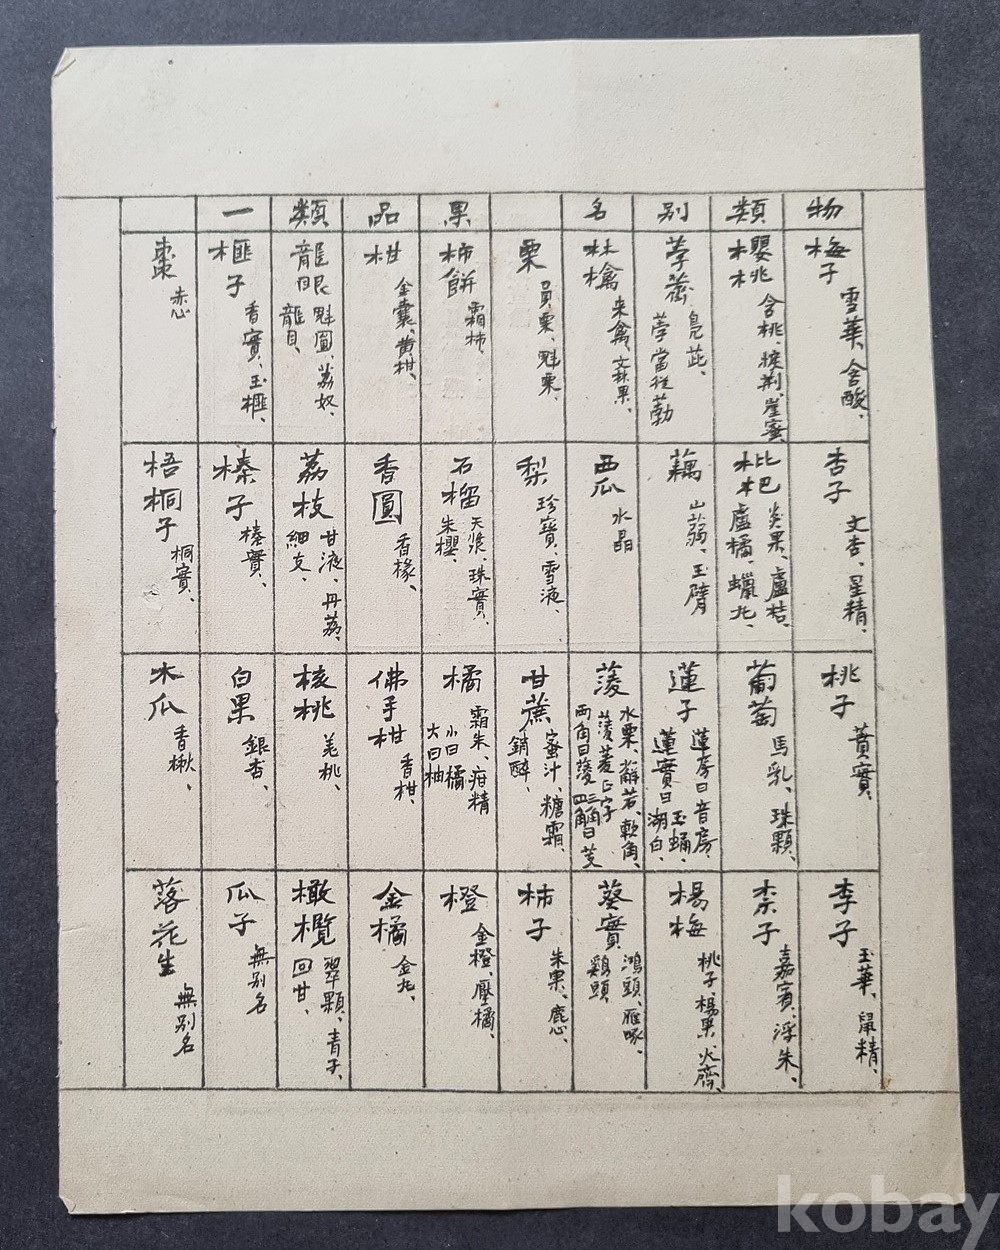 物類別名 果品類一
梅子 雪華、含酸、
杏子 文杏、星精、
桃子 蕡實、
李子 玉華、鼠精、
櫻桃 含桃、荆、崖蜜、
枇杷 炎果、盧桔、盧橘、蠟丸、
葡萄 馬乳、珠顆、
柰子 嘉賓、浮朱、
荸薺 鳧茈、荸當從勃
藕 山蒻、玉臂
蓮子 蓮房曰音房、玉蛹、蓮實曰湖白、
楊梅 桃子、楊果、火齊、
林檎 來禽、文林果、
西瓜 水晶
蔆 水栗、薢茩、軟角、蔆菱正字 兩角曰蔆 三角四角曰芰
蔡實 鴻頭、雁啄、鷄頭
栗 員栗、魁栗、
梨 珍寶、雪液、
甘蔗 蜜汁、糖霜、銷醉、
柿子 朱果、鹿心、
柿餅 霜柿、
石榴 天漿、珠實、朱櫻、
橘 霜朱、疳精 小曰橘 大曰柚
橙 金橙、壓橘、
柑 金囊、黄柑、
香圓 香櫞、
佛手柑 香柑、
金橘 金丸、
龍眼 魁圓、荔奴、龍目、
荔枝 甘液、丹荔、細支、
核桃 羌桃、
橄欖 翠顆、青子、回甘、
榧子 香實、玉榧、
榛子 榛實、
白果 銀杏、
瓜子 無别名
棗 赤心
梧桐子 桐實、
木瓜 香楸、
落花生 無别名
kobay